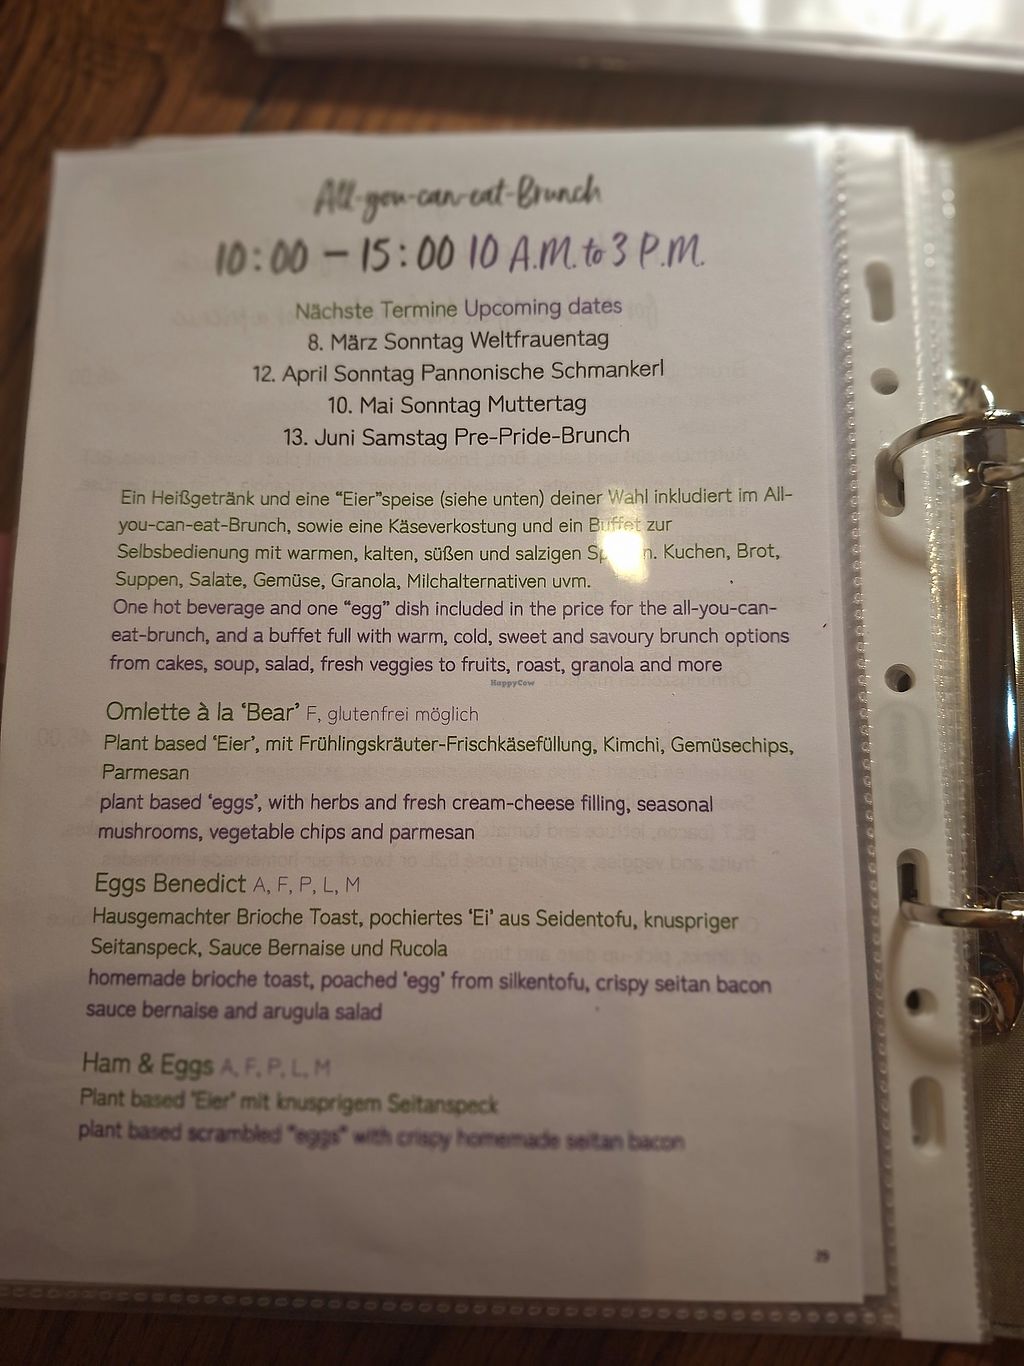 All-you-can-eat-Brunch
10:00 – 15:00 10 A.M. to 3 P.M.
Nächste Termine Upcoming dates
8. März Sonntag Weltfrauentag
12. April Sonntag Pannonische Schmankerl
10. Mai Sonntag Muttertag
13. Juni Samstag Pre-Pride-Brunch
Ein Heißgetränk und eine “Eier”speise (siehe unten) deiner Wahl inkludiert im All-
you-can-eat-Brunch, sowie eine Käseverkostung und ein Buffet zur
Selbsbedienung mit warmen, kalten, süßen und salzigen Kuchen, Brot,
Suppen, Salate, Gemüse, Granola, Milchalternativen uvm.
One hot beverage and one “egg” dish included in the price for the all-you-can-
eat-brunch, and a buffet full with warm, cold, sweet and savoury brunch options
from cakes, soup, salad, fresh veggies to fruits, roast, granola and more
HappyCow
Omlette à la ‘Bear’ F, glutenfrei möglich
Plant based ‘Eier’, mit Frühlingskräuter-Frischkäsefüllung, Kimchi, Gemüsechips,
Parmesan
plant based ‘eggs’, with herbs and fresh cream-cheese filling, seasonal
mushrooms, vegetable chips and parmesan
Eggs Benedict A, F, P, L, M
Hausgemachter Brioche Toast, pochiertes ‘Ei’ aus Seidentofu, knuspriger
Seitanspeck, Sauce Bernaise und Rucola
homemade brioche toast, poached ‘egg’ from silkentofu, crispy seitan bacon
sauce bernaise and arugula salad
Ham & Eggs A, F, P, L, M
Plant based ‘Eier’ mit knusprigem Seitanspeck
plant based scrambled “eggs” with crispy homemade seitan bacon